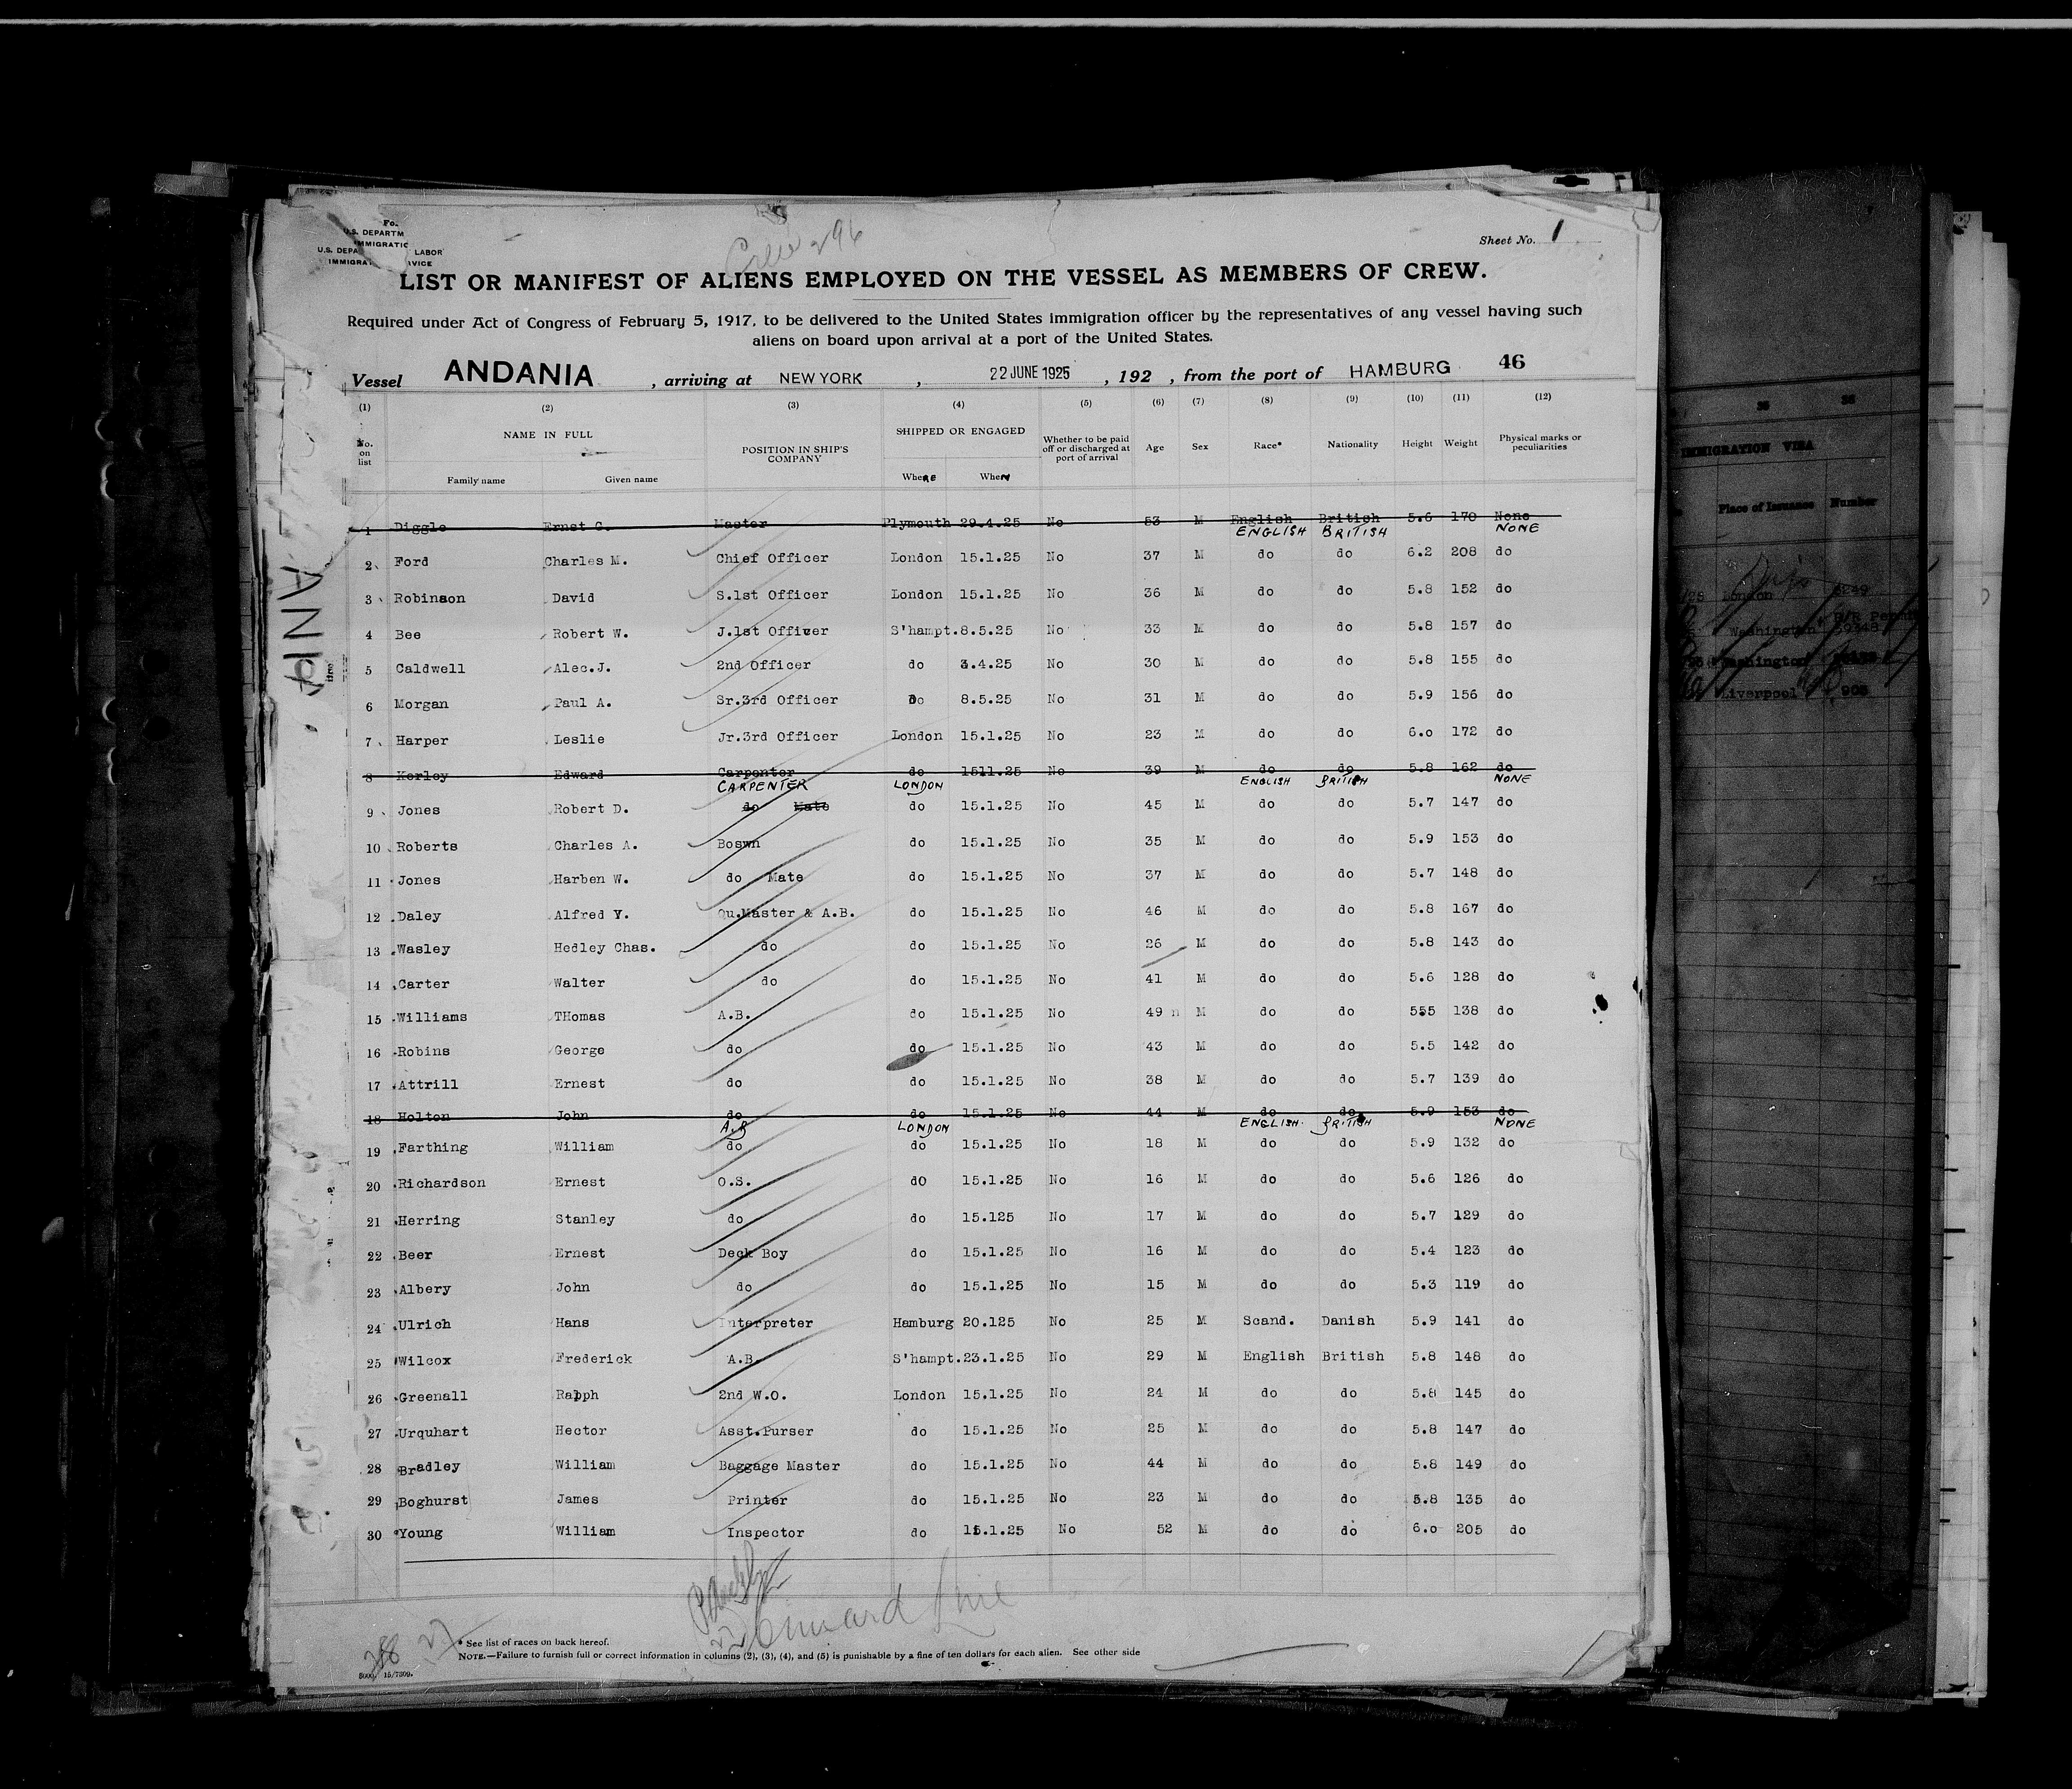 Fo.
U.S. DEPARTM
IMMIGRATIC
U.S. DEPA LABOR
IMMIGRA VICE
Crew 296
Sheet No. 1
LIST OR MANIFEST OF ALIENS EMPLOYED ON THE VESSEL AS MEMBERS OF CREW.
Required under Act of Congress of February 5, 1917, to be delivered to the United States Immigration officer by the representatives of any vessel having such
aliens on board upon arrival at a port of the United States.
Vessel ANDANIA , arriving at NEW YORK , 22 JUNE 1925 , 192 , from the port of HAMBURG 46
(1) (2) (3) (4) (5) (6) (7) (8) (9) (10) (11) (12)
No. on list NAME IN FULL Family name Given name POSITION IN SHIP'S COMPANY SHIPPED OR ENGAGED Where When Whether to be paid off or discharged at port of arrival Age Sex Race* Nationality Height Weight Physical marks or peculiarities
1 Diggle Ernst C. Master Plymouth 29.4.25 No 53 M English British 5.6 170 None
ENGLISH BRITISH NONE
2 Ford Charles M. Chief Officer London 15.1.25 No 37 M do do 6.2 208 do
3 Robinson David S.1st Officer London 15.1.25 No 36 M do do 5.8 152 do
4 Bee Robert W. J.1st Officer S'hampt. 8.5.25 No 33 M do do 5.8 157 do
5 Caldwell Alec.J. 2nd Officer do 3.4.25 No 30 M do do 5.8 155 do
6 Morgan Paul A. Sr.3rd Officer Do 8.5.25 No 31 M do do 5.9 156 do
7 Harper Leslie Jr.3rd Officer London 15.1.25 No 23 M do do 6.0 172 do
8 Kerley Edward Carpenter do 1511.25 No 39 M do do 5.8 162 do
CARPENTER LONDON ENGLISH BRITISH NONE
9 Jones Robert D. do Mate do 15.1.25 No 45 M do do 5.7 147 do
10 Roberts Charles A. Boswn do 15.1.25 No 35 M do do 5.9 153 do
11 Jones Harben W. do Mate do 15.1.25 No 37 M do do 5.7 148 do
12 Daley Alfred Y. Qu.Master & A.B. do 15.1.25 No 46 M do do 5.8 167 do
13 Wasley Hedley Chas. do do 15.1.25 No 26 M do do 5.8 143 do
14 Carter Walter do do 15.1.25 No 41 M do do 5.6 128 do
15 Williams THomas A.B. do 15.1.25 No 49 n M do do 555 138 do
16 Robins George do do 15.1.25 No 43 M do do 5.5 142 do
17 Attrill Ernest do do 15.1.25 No 38 M do do 5.7 139 do
18 Holton John do do 15.1.25 No 44 M do do 5.9 153 do
A.B LONDON ENGLISH. BRITISH NONE
19 Farthing William do do 15.1.25 No 18 M do do 5.9 132 do
20 Richardson Ernest O.S. dO 15.1.25 No 16 M do do 5.6 126 do
21 Herring Stanley do do 15.125 No 17 M do do 5.7 129 do
22 Beer Ernest Deck Boy do 15.1.25 No 16 M do do 5.4 123 do
23 Albery John do do 15.1.25 No 15 M do do 5.3 119 do
24 Ulrich Hans Interpreter Hamburg 20.125 No 25 M Scand. Danish 5.9 141 do
25 Wilcox Frederick A.B. S'hampt. 23.1.25 No 29 M English British 5.8 148 do
26 Greenall Ralph 2nd W.O. London 15.1.25 No 24 M do do 5.8 145 do
27 Urquhart Hector Asst.Purser do 15.1.25 No 25 M do do 5.8 147 do
28 Bradley William Baggage Master do 15.1.25 No 44 M do do 5.8 149 do
29 Boghurst James Printer do 15.1.25 No 23 M do do 5.8 135 do
30 Young William Inspector do 15.1.25 No 52 M do do 6.0 205 do
Cunard Line
* See list of races on back hereof.
NOTE.—Failure to furnish full or correct information in columns (2), (3), (4), and (5) is punishable by a fine of ten dollars for each alien. See other side
35 36
IMMIGRATION VISA
Place of Issuance Number
London 6249
Washington
Washington
Liverpool 908